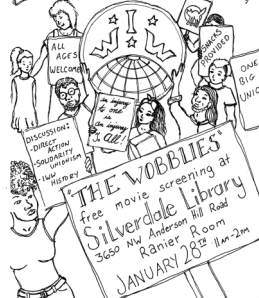 IWW
ALL
AGES
WELCOME
SNACKS
PROVIDED
ONE
BIG
UNION
an injury
to one
is
an injury
to ALL!
DISCUSSION:
-DIRECT
ACTION
-SOLIDARITY
UNIONISM
-IWW
HISTORY
"THE WOBBLIES"
free movie screening at
Silverdale Library
3650 NW Anderson Hill Road
Ranier Room
JANUARY 28TH 11AM-2PM